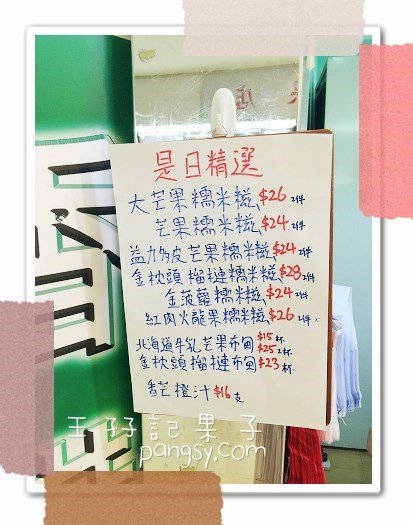 是日精選
大芒果糯米糍 $26 2件
芒果糯米糍 $24 2件
益力多皮芒果糯米糍 $24 2件
金枕頭榴槤糯米糍 $29 2件
金菠蘿糯米糍 $24 2件
紅肉火龍果糯米糍 $26 2件
北海道牛乳芒果布甸 $15 杯 $25 2杯
金枕頭榴槤布甸 $23 杯
香芒橙汁 $16 支
王孖記果子
pangsy.com